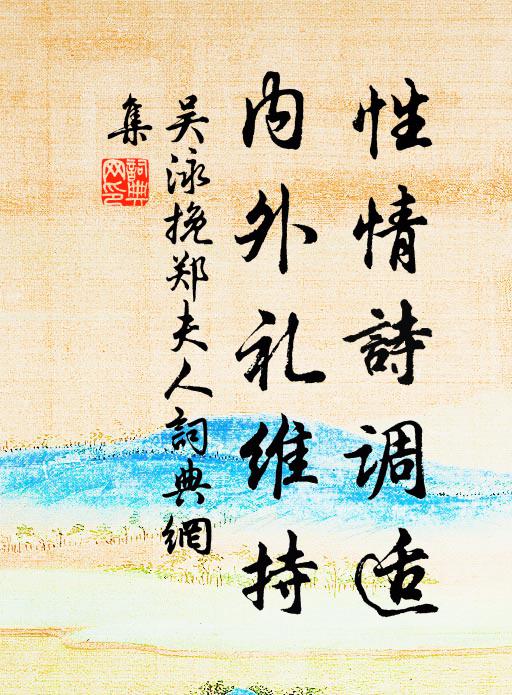 性情詩调适
内外礼維持
吴泳挽郑夫人詞典網
集
詞典網印